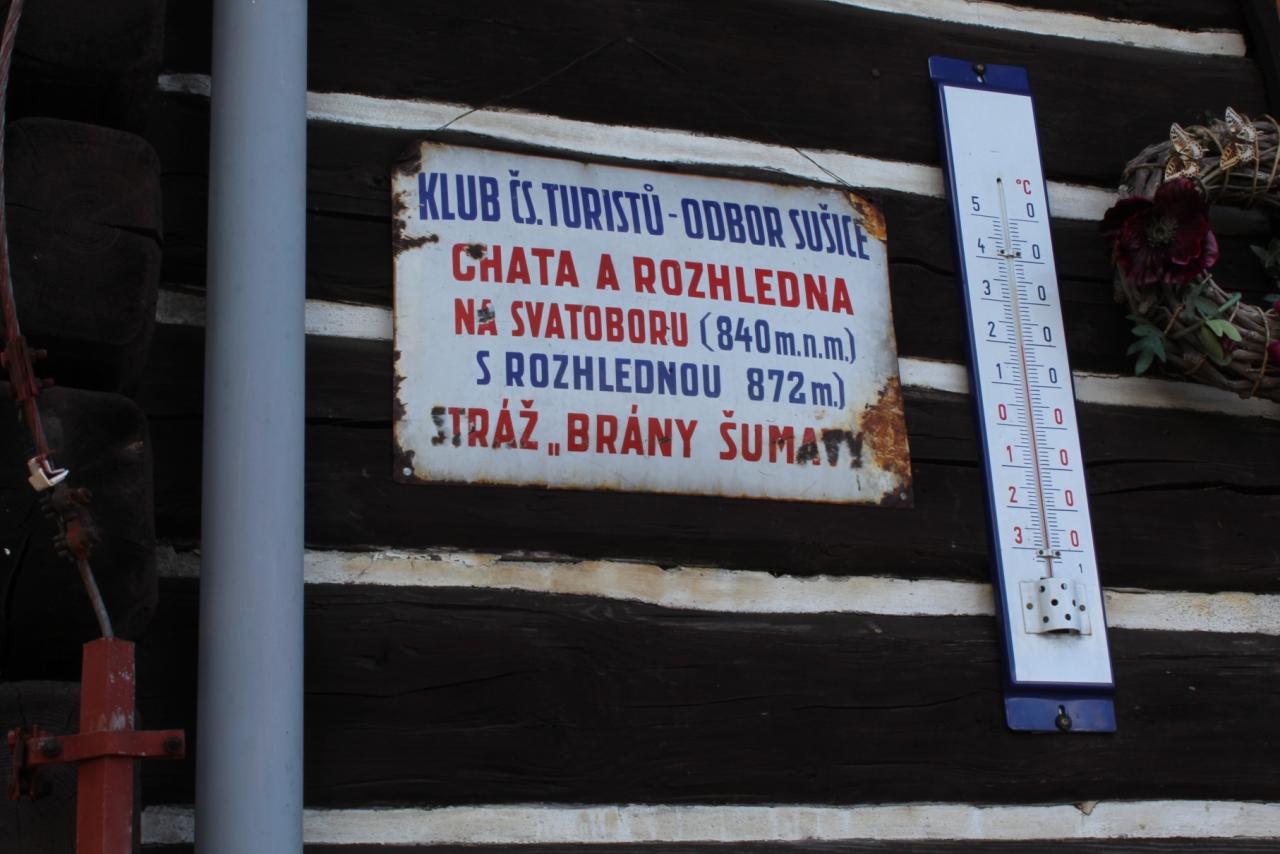 KLUB ČS. TURISTŮ - ODBOR SUŠICE
CHATA A ROZHLEDNA
NA SVATOBORU (840 m.n.m.)
S ROZHLEDNOU 872 m.)
STRÁŽ „BRÁNY ŠUMAVY
°C
5 0
4 0
3 0
2 0
1 0
0 0
1 0
2 0
3 0
1